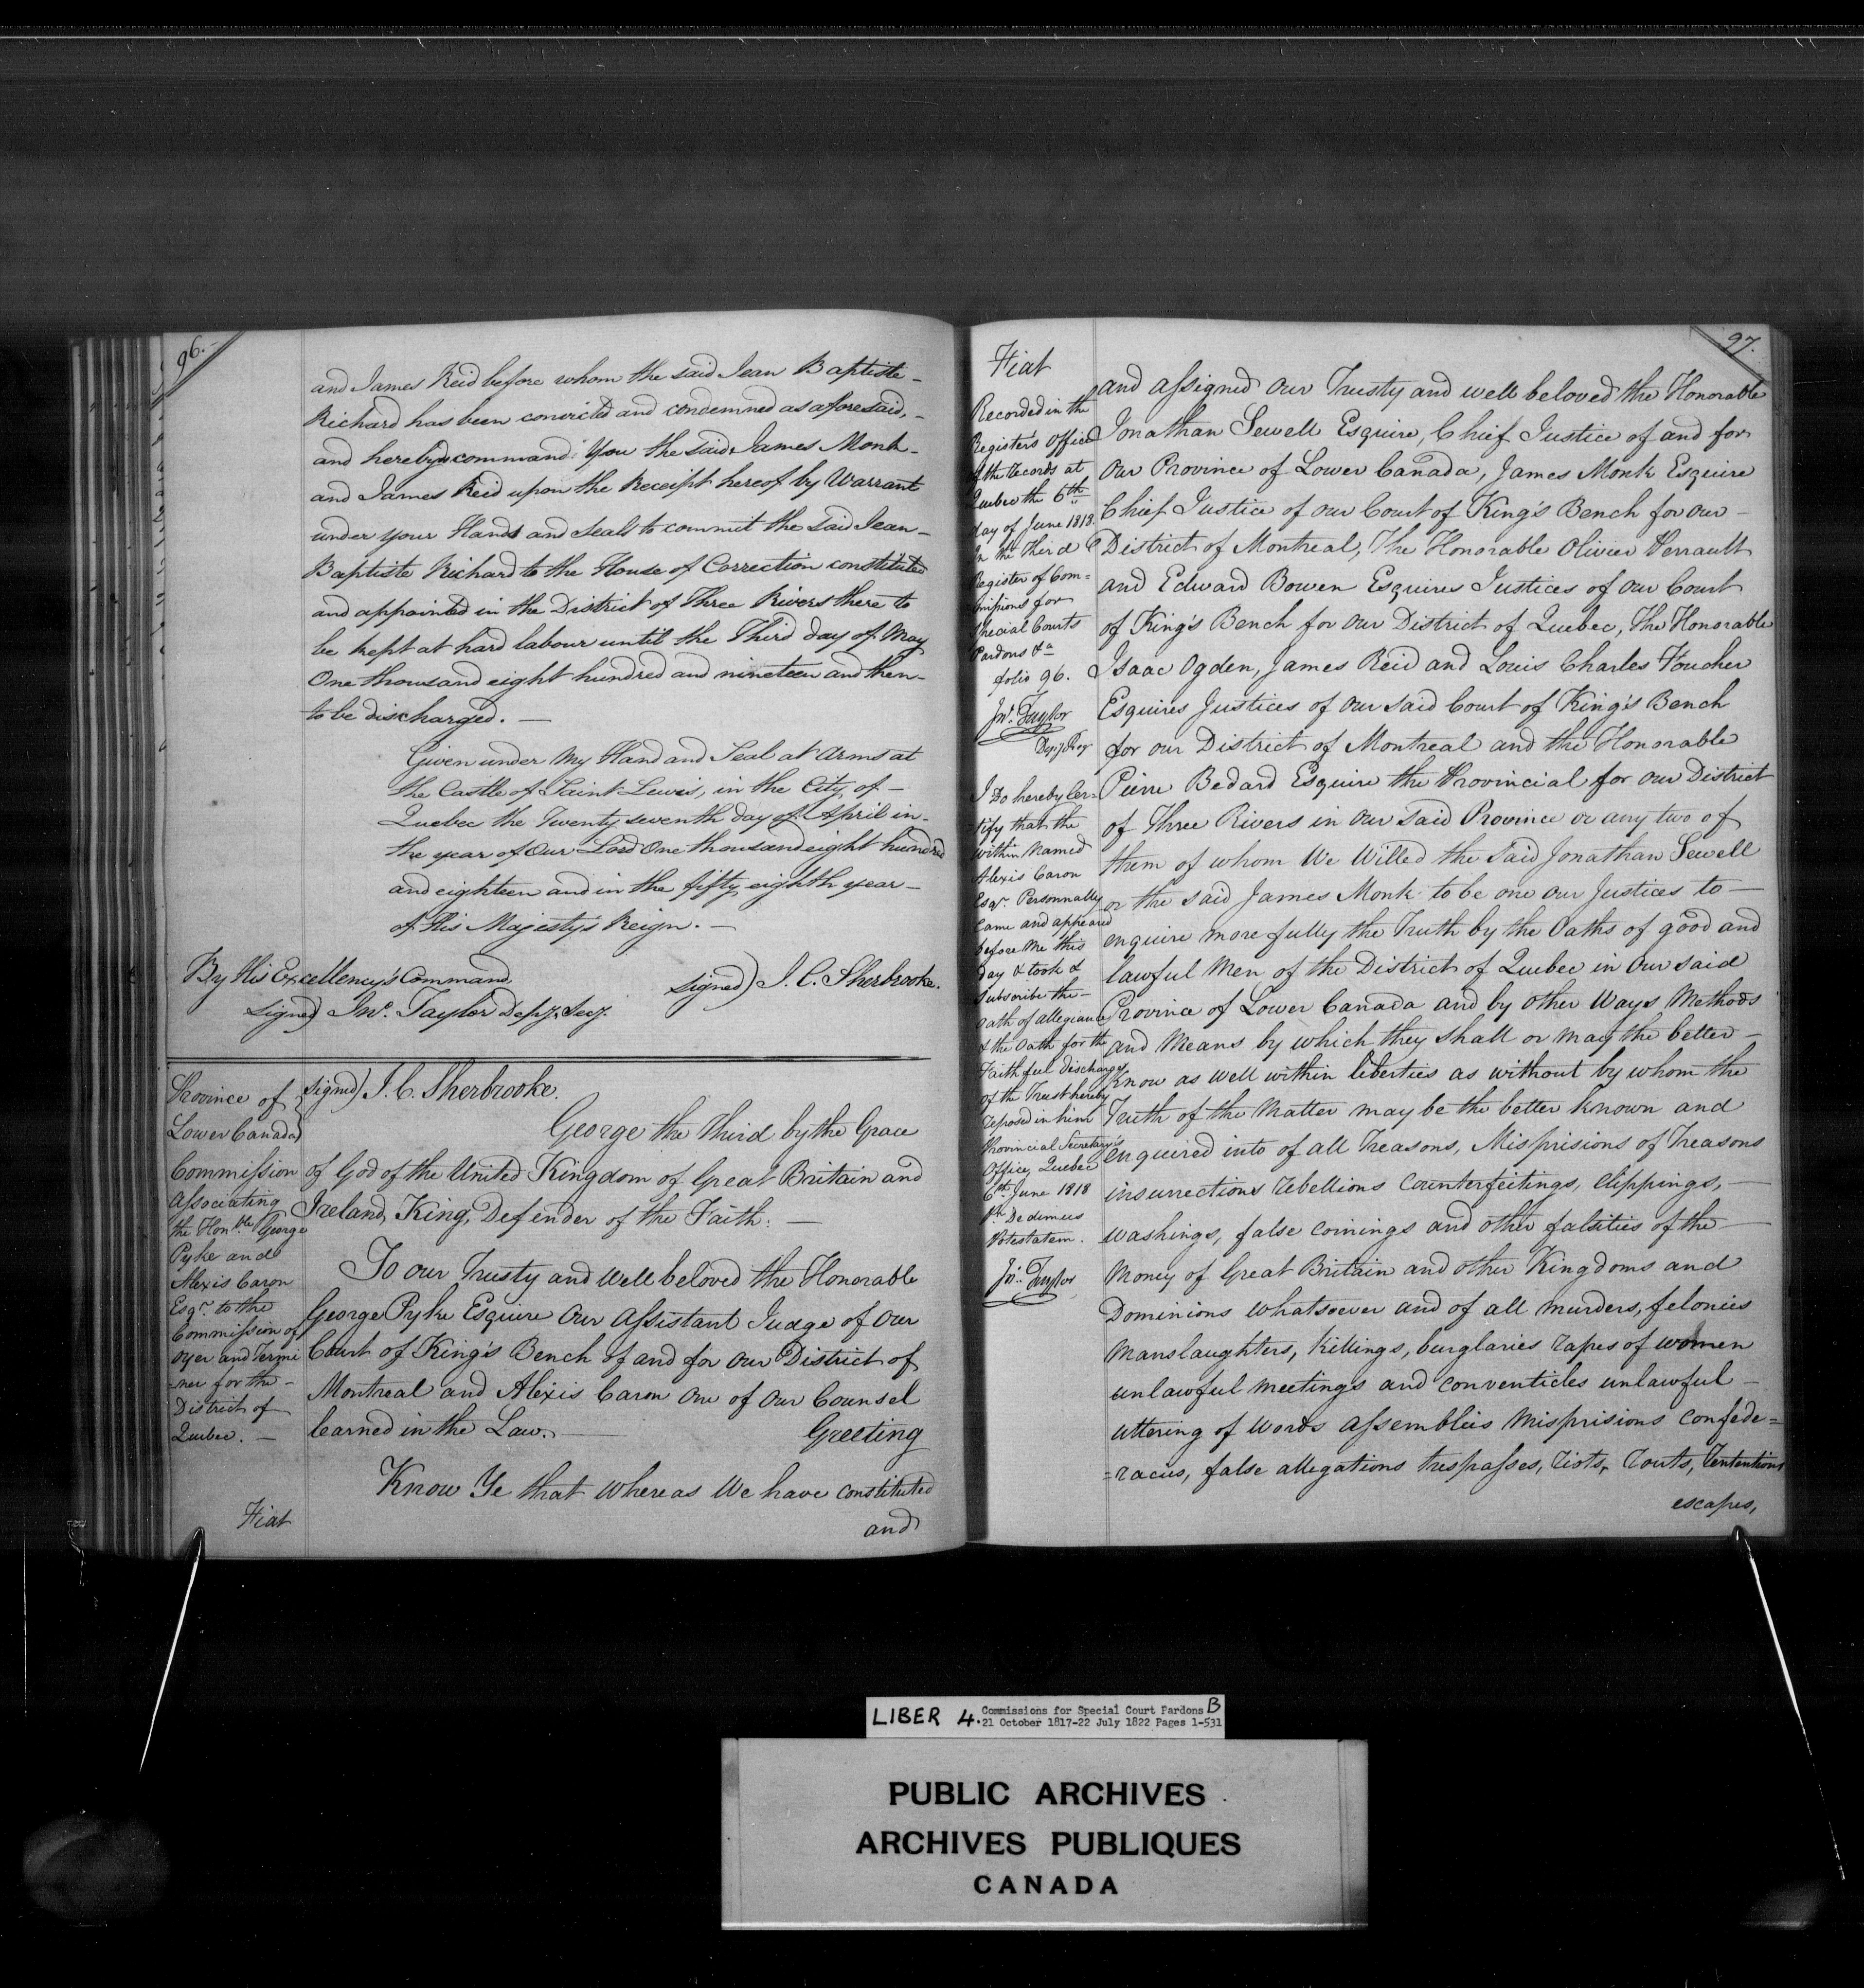 96.
and James Reid before whom the said Jean Baptiste -
Richard has been convicted and condemned as aforesaid, -
and hereby command You the said James Monk -
and James Reid upon the Receipt hereof by Warrant
under your Hands and Seals to commit the said Jean -
Baptiste Richard to the House of Correction constituted
and appointed in the District of Three Rivers there to
be kept at hard labour until the Third day of May
One thousand eight hundred and nineteen and then -
to be discharged. -
Given under My Hand and Seal at Arms at
the Castle of Saint Lewis, in the City of -
Quebec the Twenty seventh day of April in -
the year of Our Lord One thousand eight hundred
and eighteen and in the fifty eighth year -
of His Majesty's Reign. -
By His Excellency's Command
signed) J. C. Sherbrooke.
signed) Jno. Taylor Depy. Secy.
Province of
Lower Canada
Commission
Associating
the Honble George
Pyke and
Alexis Caron
Esqr. to the
Commission of
Oyer and Termi
-ner for the -
District of
Quebec. -
Fiat
signed) J. C. Sherbrooke.
George the Third by the Grace
of God of the United Kingdom of Great Britain and
Ireland, King, Defender of the Faith. -
To our Trusty and Well beloved the Honorable
George Pyke Esquire Our Assistant Judge of our
Court of King's Bench of and for our District of
Montreal and Alexis Caron One of Our Counsel
learned in the Law. - Greeting
Know Ye that Whereas We have constituted
and
97.
Fiat
Recorded in the
Register's Office
of the Records at
Quebec the 6th
day of June 1818.
In the Third
Register of Com=
missions for
Special Courts
Pardons &a
folio 96.
Jno. Taylor
Depy. Reg
I Do hereby Cer=
tify that the
within Named
Alexis Caron
Esqr. Personnally
Came and appeared
before Me this
day & took &
Subscribe the -
Oath of allegiance
& the Oath for the
Faithful discharge
of the Trust hereby
reposed in him
Provincial Secretary's
Office, Quebec
6th June 1818
Pr. Dedimus
Potestatem.
Jno. Taylor
and assigned Our Trusty and well beloved the Honorable
Jonathan Sewell Esquire, Chief Justice of and for
Our Province of Lower Canada, James Monk Esquire
Chief Justice of our Court of King's Bench for our -
District of Montreal, The Honorable Olivier Perrault
and Edward Bowen Esquires Justices of our Court
of King's Bench for our District of Quebec, The Honorable
Isaac Ogden, James Reid and Louis Charles Foucher
Esquires Justices of our said Court of King's Bench
for our District of Montreal and the Honorable
Pierre Bedard Esquire the Provincial for our District
of Three Rivers in Our said Province or any two of
them of whom We Willed the said Jonathan Sewell
or the said James Monk to be one our Justices to -
enquire more fully the Truth by the Oaths of good and
lawful Men of the District of Quebec in Our said
Province of Lower Canada and by other Ways Methods
and Means by which they shall or may the better -
know as well within liberties as without by whom the
Truth of the Matter may be the better known and
enquired into of all Treasons, Misprisions of Treasons
insurrections rebellions Counterfeitings, Clippings, -
washings, false coinings and other falsities of the -
Money of Great Britain and other Kingdoms and
Dominions whatsoever and of all murders, felonies
Manslaughters, killings, burglaries rapes of women
unlawful meetings and conventicles unlawful -
uttering of words assemblies Misprisions Confede=
=racies, false allegations trespasses, riots, routs, retentions
escapes,
LIBER 4. Commissions for Special Court Pardons B
21 October 1817-22 July 1822 Pages 1-531
PUBLIC ARCHIVES
ARCHIVES PUBLIQUES
CANADA